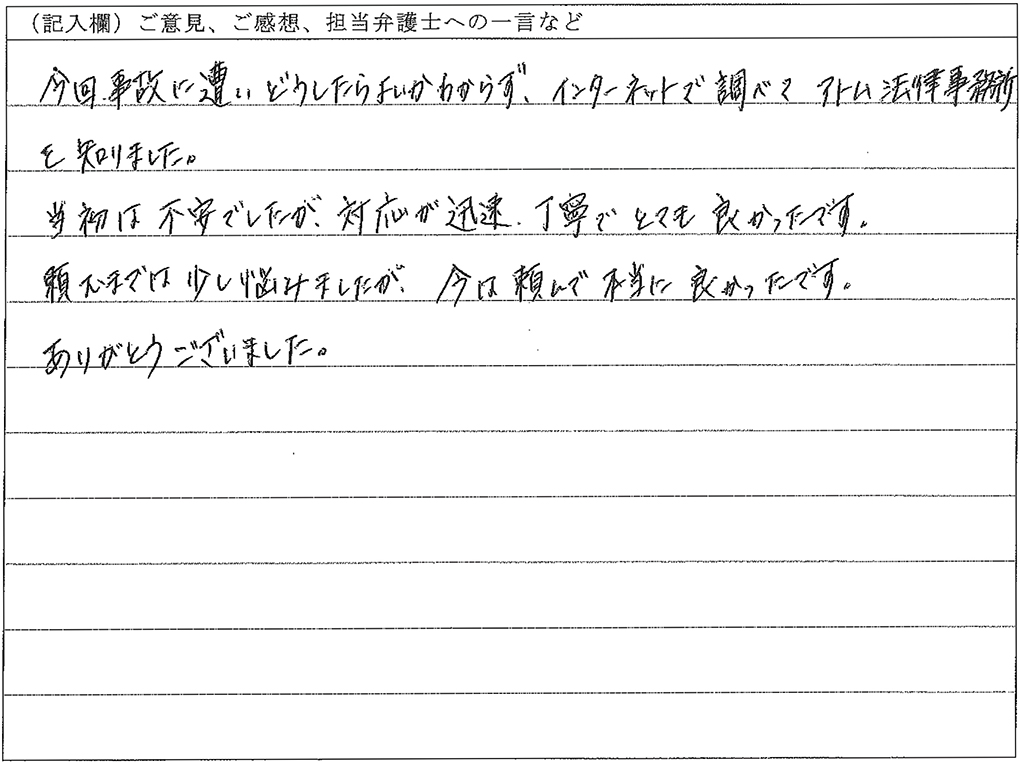 （記入欄）ご意見、ご感想、担当弁護士への一言など
今回事故に遭いどうしたらよいかわからず、インターネットで調べて アトム法律事務所
を知りました。
当初は不安でしたが、対応が迅速、丁寧でとても良かったです。
頼むまでは少し悩みましたが、今は頼んで本当に良かったです。
ありがとうございました。